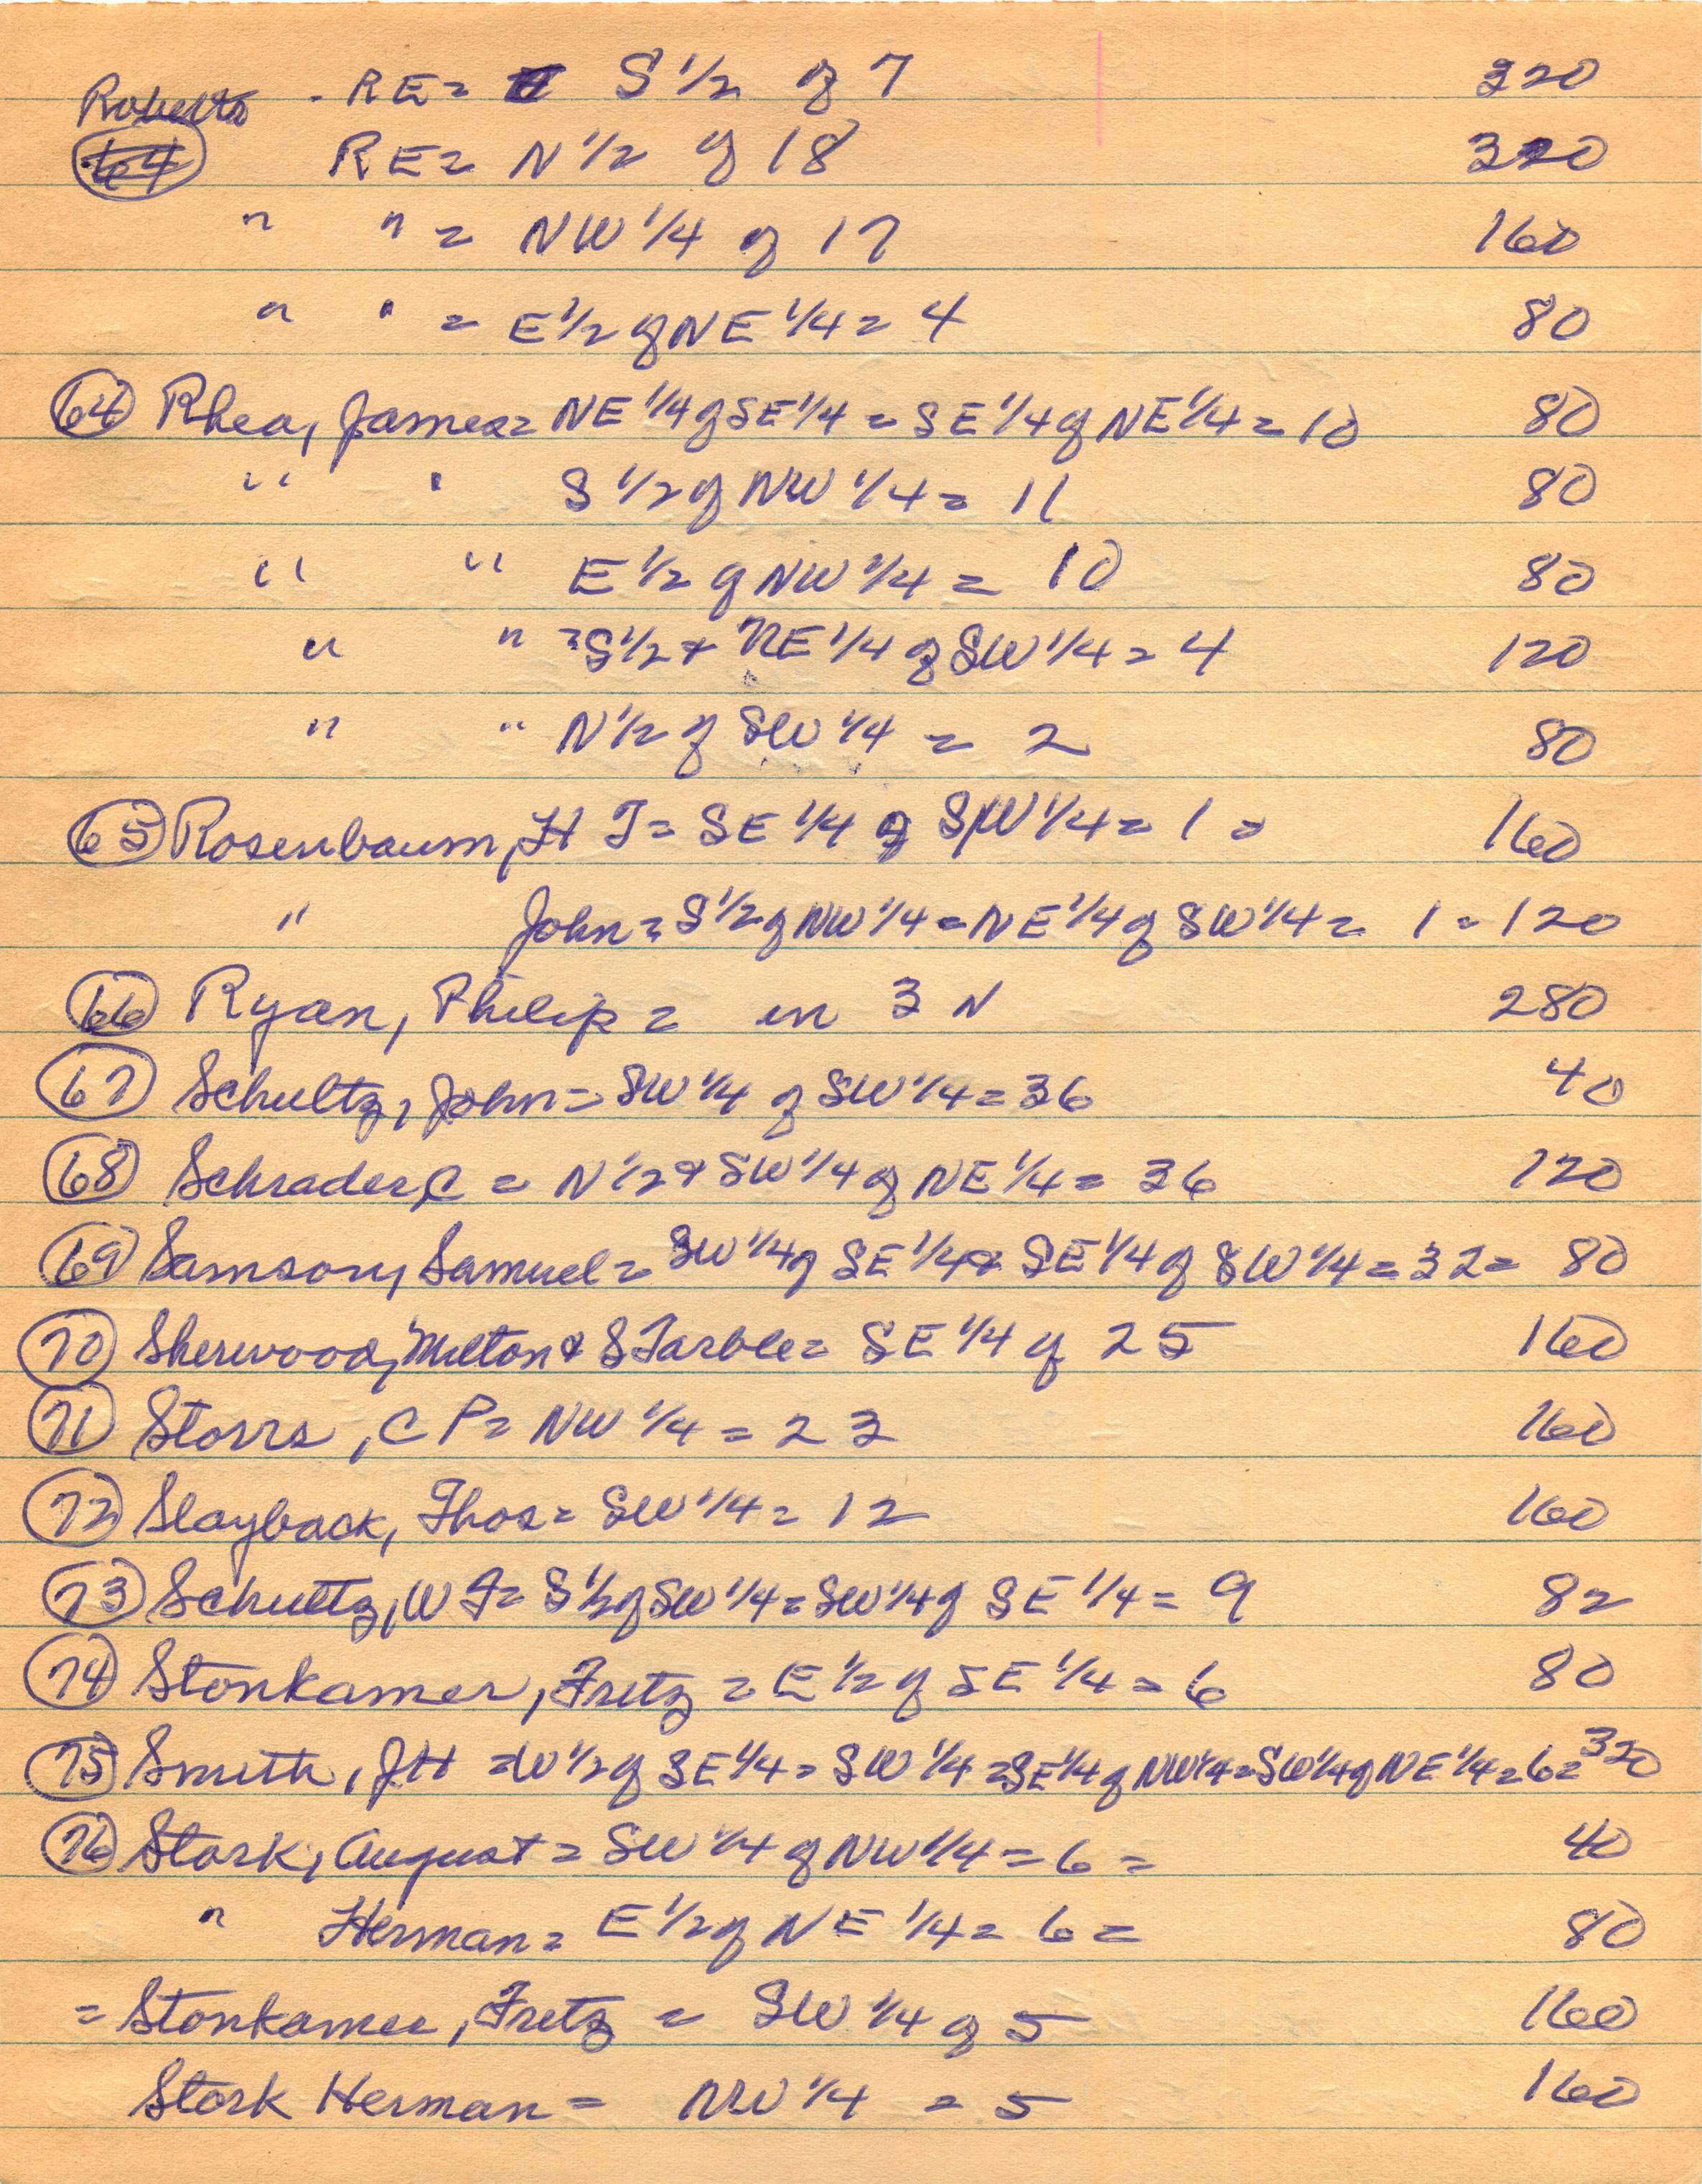 Roberts - RE = S 1/2 of 7 320
64 RE = N 1/2 of 18 320
" " = NW 1/4 of 17 160
" " = E 1/2 of NE 1/4 = 4 80
64 Rhea, James = NE 1/4 of SE 1/4 = SE 1/4 of NE 1/4 = 10 80
" " S 1/2 of NW 1/4 = 11 80
" " E 1/2 of NW 1/4 = 10 80
" " = S 1/2 + NE 1/4 of SW 1/4 = 4 120
" " N 1/2 of SW 1/4 = 2 80
65 Rosenbaum, H J = SE 1/4 of SW 1/4 = 1 = 160
" John = S 1/2 of NW 1/4 = NE 1/4 of SW 1/4 = 1 = 120
66 Ryan, Philip = in 3 N 280
67 Schultz, John = SW 1/4 of SW 1/4 = 36 40
68 Schrader, C = N 1/2 + SW 1/4 of NE 1/4 = 36 120
69 Samson, Samuel = SW 1/4 of SE 1/4 + SE 1/4 of SW 1/4 = 32 = 80
70 Sherwood, Milton & S Tarble = SE 1/4 of 25 160
71 Storrs, C P = NW 1/4 = 23 160
72 Slayback, Thos = SW 1/4 = 12 160
73 Schultz, W F = S 1/2 of SW 1/4 = SW 1/4 of SE 1/4 = 9 82
74 Stonkamer, Fretz = E 1/2 of SE 1/4 = 6 80
75 Smith, J H = W 1/2 of SE 1/4 = SW 1/4 = SE 1/4 of NW 1/4 = SW 1/4 of NE 1/4 = 6 = 320
76 Stork, August = SW 1/4 of NW 1/4 = 6 = 40
" Herman = E 1/2 of NE 1/4 = 6 = 80
= Stonkamer, Fretz = SW 1/4 of 5 160
Stork Herman = NW 1/4 = 5 160